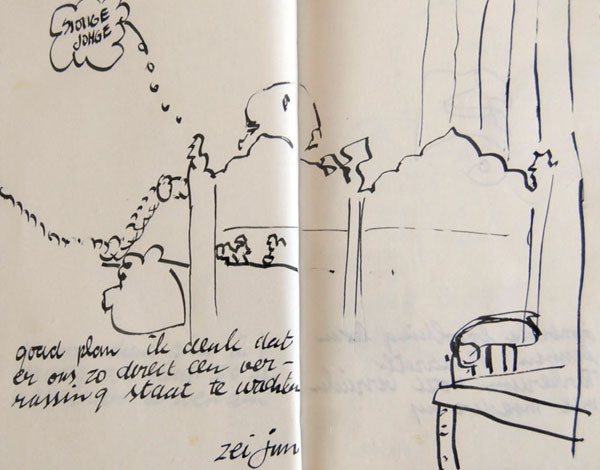 JONGE
JONGE
goed plan ik denk dat
er ons zo direct een ver-
rassing staat te wachten
zei jan